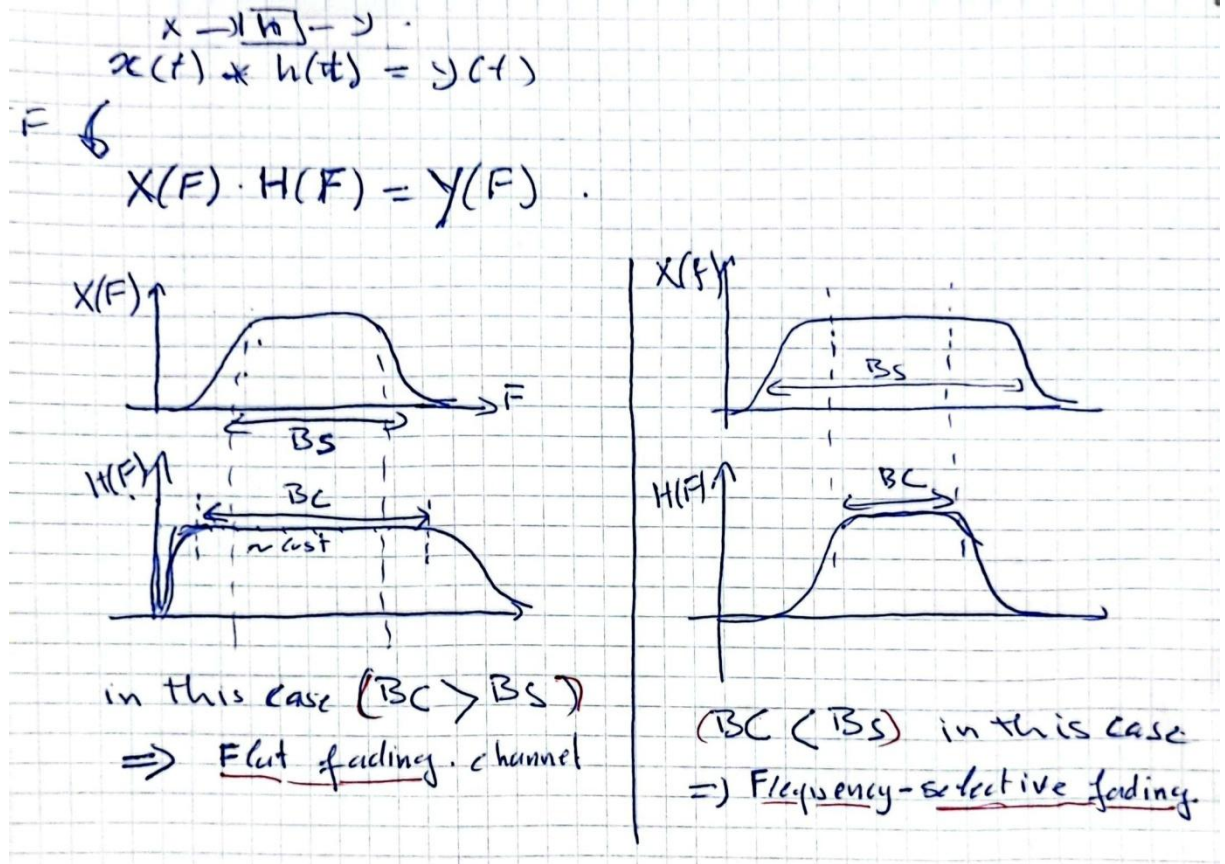 x → h → y .
x(t) * h(t) = y(t)
F
X(F) . H(F) = Y(F) .
X(F)
F
BS
H(F)
BC
~ cust
in this case (BC > BS)
=> Flat fading . channel
X(f)
BS
H(F)
BC
(BC < BS) in this case
=> Frequency-selective fading.